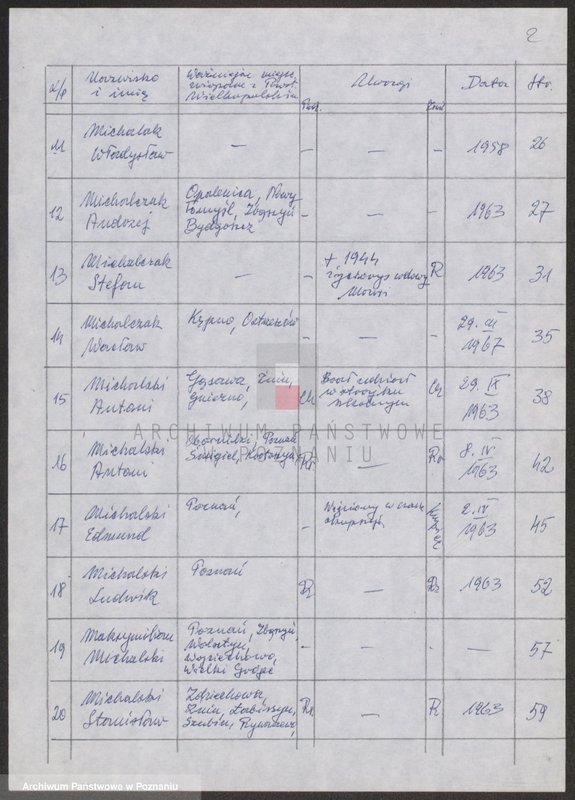 2
L/p
Nazwisko
i imię
Ważniejsze miejsc.
związane z Powst.
Wielkopolskim
Uwagi
Data
Str.
11
Michalak
Władysław
—
—
—
—
1958
26
12
Michalczak
Andrzej
Opalenica, Nowy
Tomyśl, Zbąszyń
Bydgoszcz
—
—
—
1963
27
13
Michalczak
Stefan
—
—
+ 1944
R
1963
31
14
Michalczak
Wacław
Kępno, Ostrzeszów
—
—
—
29. III
1967
35
15
Michalski
Antoni
Gąsawa, Żnin,
Gniezno,
Ch
Brał udział
Ch
29. IX
1963
38
16
Michalski
Antoni
Poznań
—
8. IV
1963
42
17
Michalski
Edmund
Poznań,
—
Więziony w czasie
okupacji
2. IV
1963
45
18
Michalski
Ludwik
Poznań
—
1963
52
19
Maksymilian
Michalski
Poznań, Zbąszyń
Wolsztyn,
Wojciechowo,
Wielki
—
—
—
57
20
Michalski
Stanisław
Zdziechowa,
Żnin, Łabiszyn,
Szubin, Rynarzewo,
—
R
1963
59
ARCHIWUM PAŃSTWOWE
W POZNANIU
Archiwum Państwowe w Poznaniu